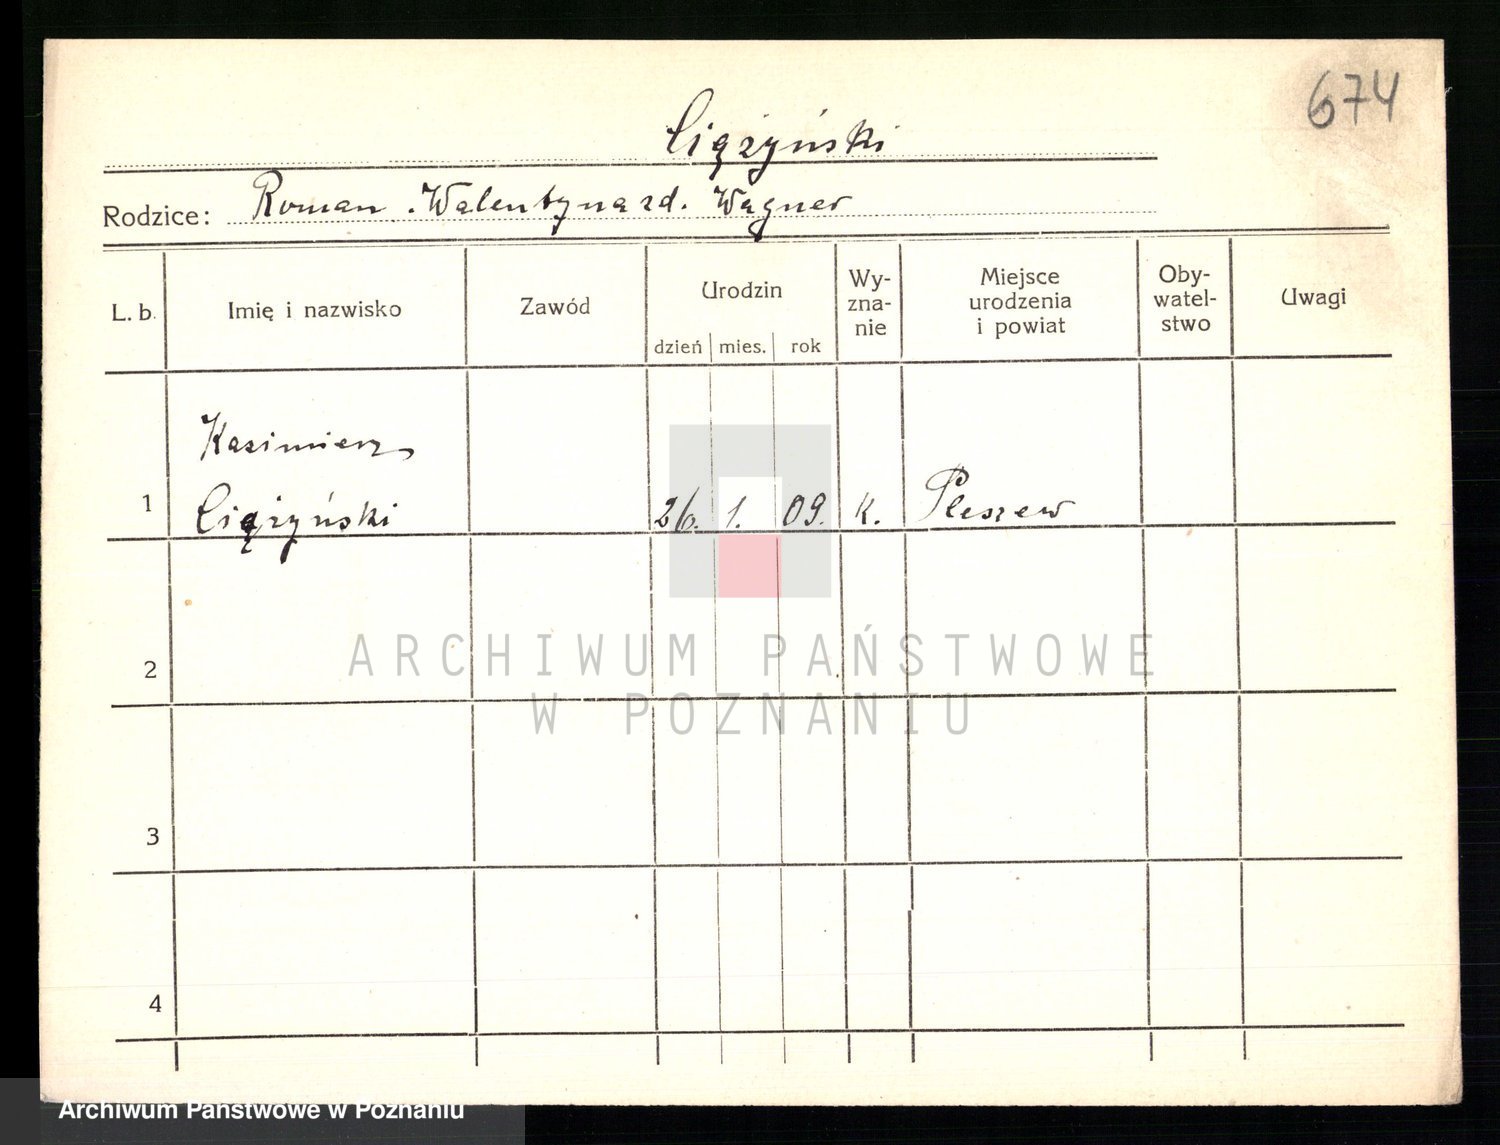 674
Ciążyński
Rodzice: Roman . Walentyna zd. Wagner
L. b. Imię i nazwisko Zawód Urodzin dzień mies. rok Wy-zna-nie Miejsce urodzenia i powiat Oby-watel-stwo Uwagi
Kazimierz
1 Ciążyński 26. 1. 09. K. Pleszew
2
ARCHIWUM PAŃSTWOWE
W POZNANIU
3
4
Archiwum Państwowe w Poznaniu